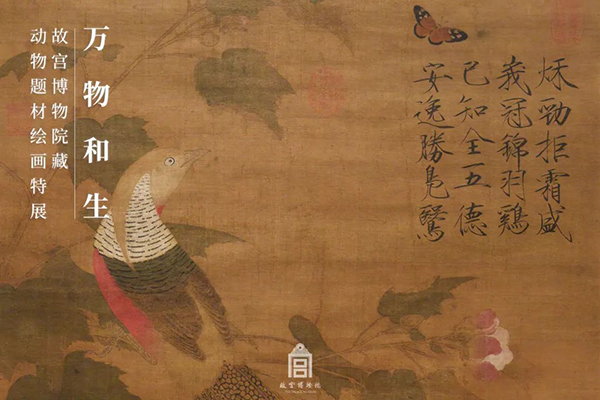 万物和生
故宫博物院藏
动物题材绘画特展
秋勁拒霜盛
峩冠錦羽鷄
已知全五德
安逸勝鳧鷖
故宫博物院